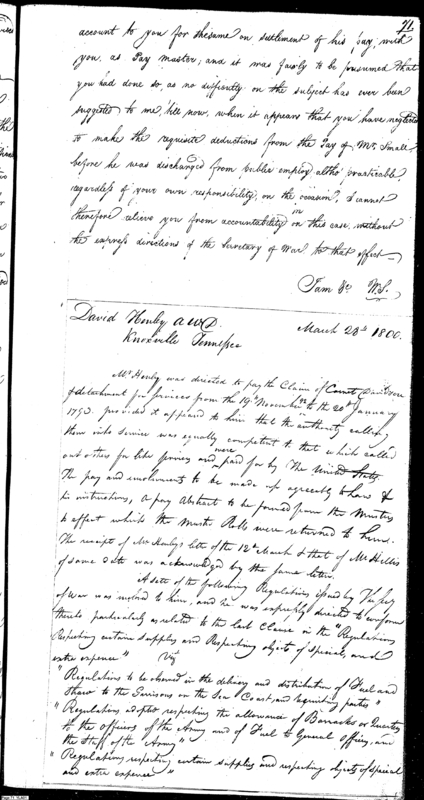 71
account to you for the same on settlement of his pay, with
you, as Pay master; and it was fairly to be presumed that
you had done so, as no difficulty on the subject has ever been
suggested to me till now, when it appears that you have neglected
to make the requisite deductions from the Pay of Mr. Small
before he was discharged from public employ altho' practicable,
regardless of your own responsibility, on the occasion, I cannot
therefore relieve you from accountability in this case, without
the express directions of the Secretary of War to that effect
I am &c W.S.
David Henley A W D.
Knoxville Tennessee
March 28th 1800.
Mr Henley was directed to pay the Claim of Cornet Davidson
& detachment for services from the 19th November 92 to the 20th January
1793. provided it appeared to him that the authority calling
them into service was equally competent to that which called
out others for like services and were paid for by The United States
The pay and emoluments to be made up agreeably to Law &
his instructions, a pay Abstract to be formed from the Musters
to affect which the Muster Rolls were returned to him.
The receipt of Mr Henleys letter of the 12th March & that of Mr Hillis
of same date was acknowledged by the same letter.
A Sett of the following Regulations issued by The Secy
of War was inclosed to him, and he was expressly directed to conform
thereto particularly as related to the last Clause in the "Regulations
Respecting certain supplies and Respecting objects of special, and
extra expence" Vizt
"Regulations to be observed in the delivery and distribution of Fuel and
Straw to the Garrisons on the Sea Coast, and recruiting parties"
"Regulations adopted respecting the allowance of Barracks or Quarters
to the officers of the Army and of Fuel to General Officers, and
the Staff of the Army"
"Regulations respecting certain supplies and respecting objects of special
and extra expence"